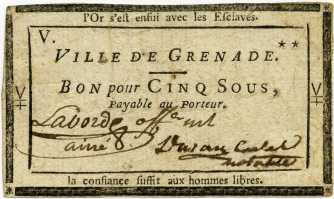 l'Or s'est enfui avec les Esclaves.
V.
VILLE DE GRENADE. **
BON pour CINQ SOUS,
Payable au Porteur.
Laborde off. mt
ainé
notable
la confiance suffit aux hommes libres.